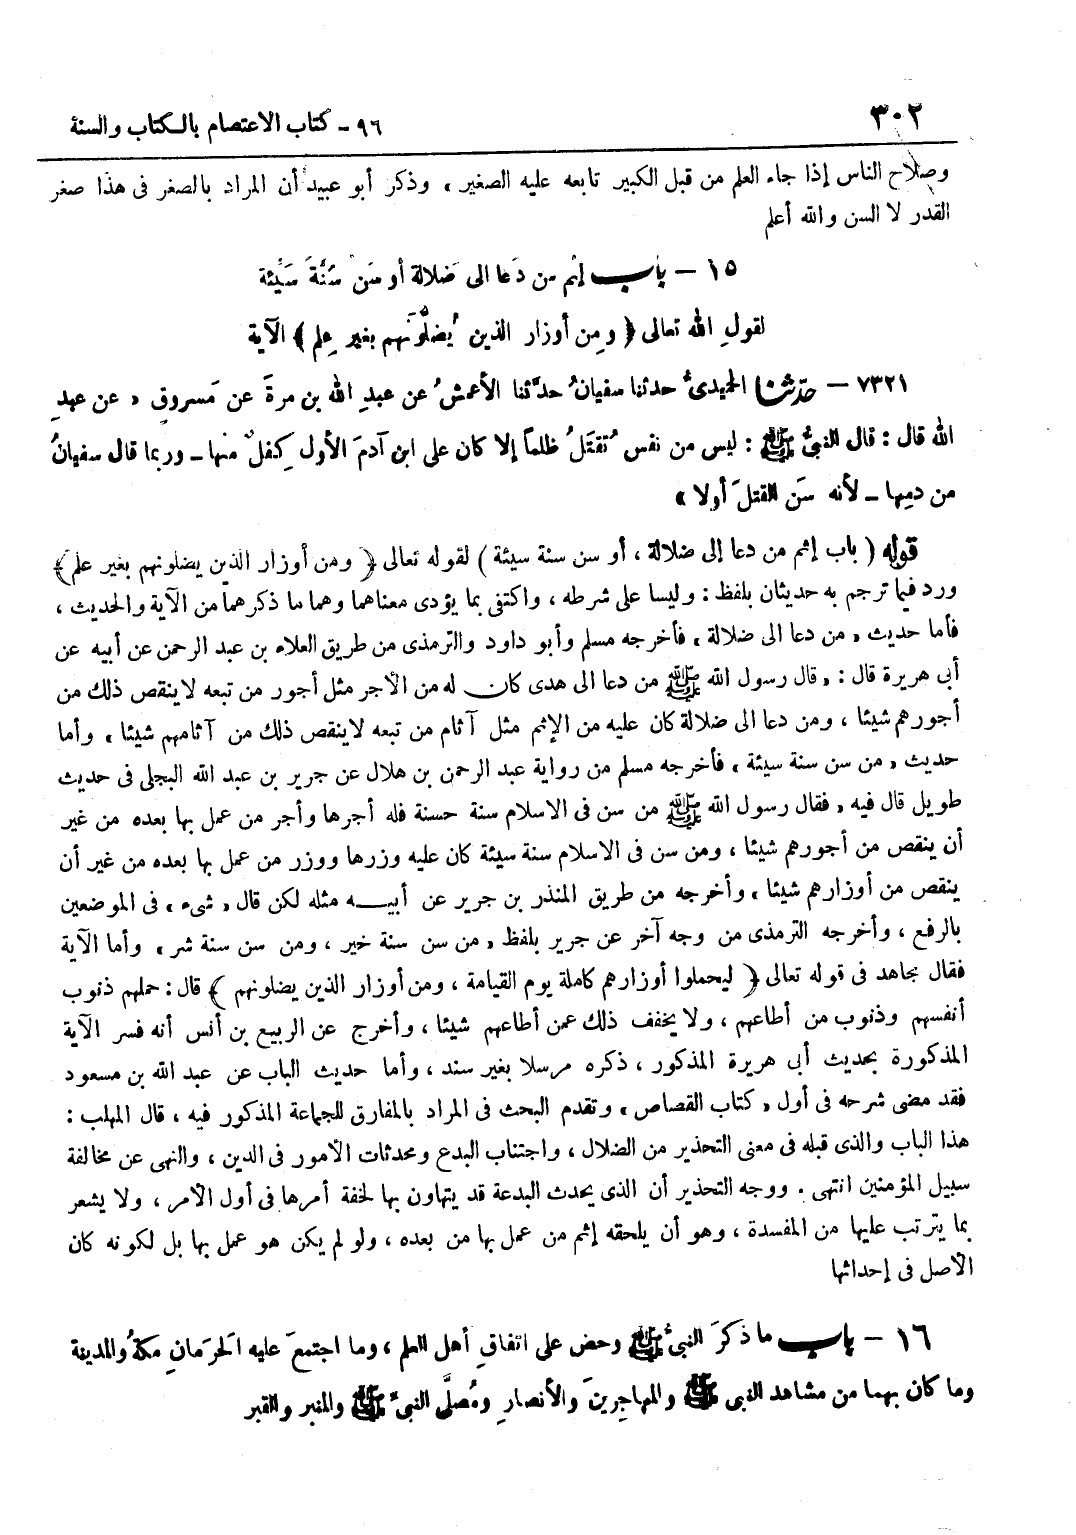 ٣٠٢
٩٦ - كتاب الاعتصام بالكتاب والسنة
وصلاح الناس إذا جاء العلم من قبل الكبير تابعه عليه الصغير ، وذكر أبو عبيد أن المراد بالصغر فى هذا صغر
القدر لا السن والله أعلم
١٥ - باب إثم من دَعا الى ضَلالة أو سَن سُنَّةَ سَيِّئة
لقولِ الله تعالى ﴿ ومِن أوزار الذين يُضلُّونَهم بغير عِلم ﴾ الآية
٧٣٢١ - حدّثنا الحميدىُّ حدثنا سفيانُ حدَّثنا الأعمشُ عن عبدِ الله بن مرةَ عن مَسروقٍ « عن عبدِ
الله قال : قال النبىُّ ﷺ : ليس من نفس تُقتَلُ ظلماً إلا كان على ابن آدمَ الأول كِفلٌ منها ـ وربما قال سفيانُ
من دمِها ـ لأنه سَن القتلَ أولا »
قوله ( باب إثم من دعا إلى ضلالة ، أو سن سنة سيئة ) لقوله تعالى ﴿ ومن أوزار الذين يضلونهم بغير علم ﴾
ورد فيما ترجم به حديثان بلفظ : وليسا على شرطه ، واكتفى بما يؤدى معناهما وهما ما ذكرهما من الآية والحديث ،
فأما حديث « من دعا الى ضلالة » فأخرجه مسلم وأبو داود والترمذى من طريق العلاء بن عبد الرحمن عن أبيه عن
أبى هريرة قال : « قال رسول الله ﷺ من دعا الى هدى كان له من الأجر مثل أجور من تبعه لا ينقص ذلك من
أجورهم شيئا ، ومن دعا الى ضلالة كان عليه من الإثم مثل آثام من تبعه لاينقص ذلك من آثامهم شيئا » وأما
حديث « من سن سنة سيئة » فأخرجه مسلم من رواية عبد الرحمن بن هلال عن جرير بن عبد الله البجلى فى حديث
طويل قال فيه « فقال رسول الله ﷺ من سن فى الاسلام سنة حسنة فله أجرها وأجر من عمل بها بعده من غير
أن ينقص من أجورهم شيئا ، ومن سن فى الاسلام سنة سيئة كان عليه وزرها ووزر من عمل بها بعده من غير أن
ينقص من أوزارهم شيئا » وأخرجه من طريق المنذر بن جرير عن أبيـــه مثله لكن قال « شىء » فى الموضعين
بالرفع ، وأخرجه الترمذى من وجه آخر عن جرير بلفظ « من سن سنة خير ، ومن سن سنة شر » وأما الآية
فقال مجاهد فى قوله تعالى ﴿ ليحملوا أوزارهم كاملة يوم القيامة ، ومن أوزار الذين يضلونهم ﴾ قال : حملهم ذنوب
أنفسهم وذنوب من أطاعهم ، ولا يخفف ذلك عمن أطاعهم شيئا ، وأخرج عن الربيع بن أنس أنه فسر الآية
المذكورة بحديث أبى هريرة المذكور ، ذكره مرسلا بغير سند ، وأما حديث الباب عن عبد الله بن مسعود
فقد مضى شرحه فى أول « كتاب القصاص » وتقدم البحث فى المراد بالمفارق للجماعة المذكور فيه ، قال المهلب :
هذا الباب والذى قبله فى معنى التحذير من الضلال ، واجتناب البدع ومحدثات الأمور فى الدين ، والنهى عن مخالفة
سبيل المؤمنين انتهى . ووجه التحذير أن الذى يحدث البدعة قد يتهاون بها لخفة أمرها فى أول الأمر ، ولا يشعر
بما يترتب عليها من المفسدة ، وهو أن يلحقه إثم من عمل بها من بعده ، ولو لم يكن هو عمل بها بل لكونه كان
الأصل فى إحداثها
١٦ - باب ما ذكرَ النبىُّ ﷺ وحض على اتفاقِ أهل العلم ، وما اجتمعَ عليه الحَرَمانِ مكةُ والمدينة
وما كان بهما من مشاهد النبى ﷺ والمهاجِرينَ والأنصارِ ومُصلَّى النبىِّ ﷺ والمنبر والقبر